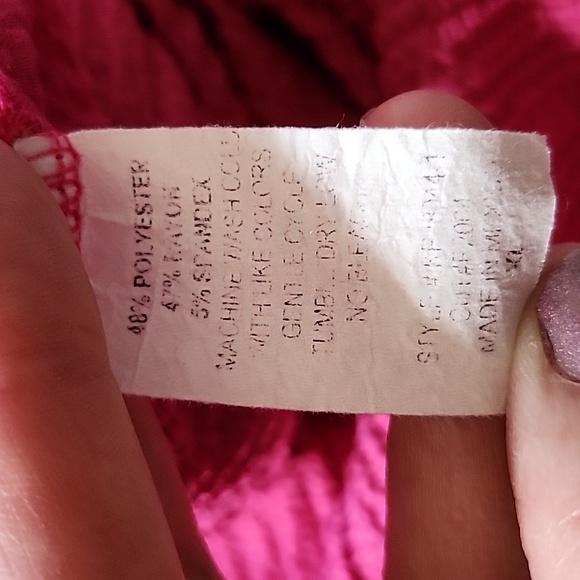 48% POLYESTER
47% RAYON
5% SPANDEX
MACHINE WASH COLD
WITH LIKE COLORS
GENTLE CYCLE
TUMBLE DRY LOW
NO BLEACH
STYLE
CUT#
MADE IN
XL